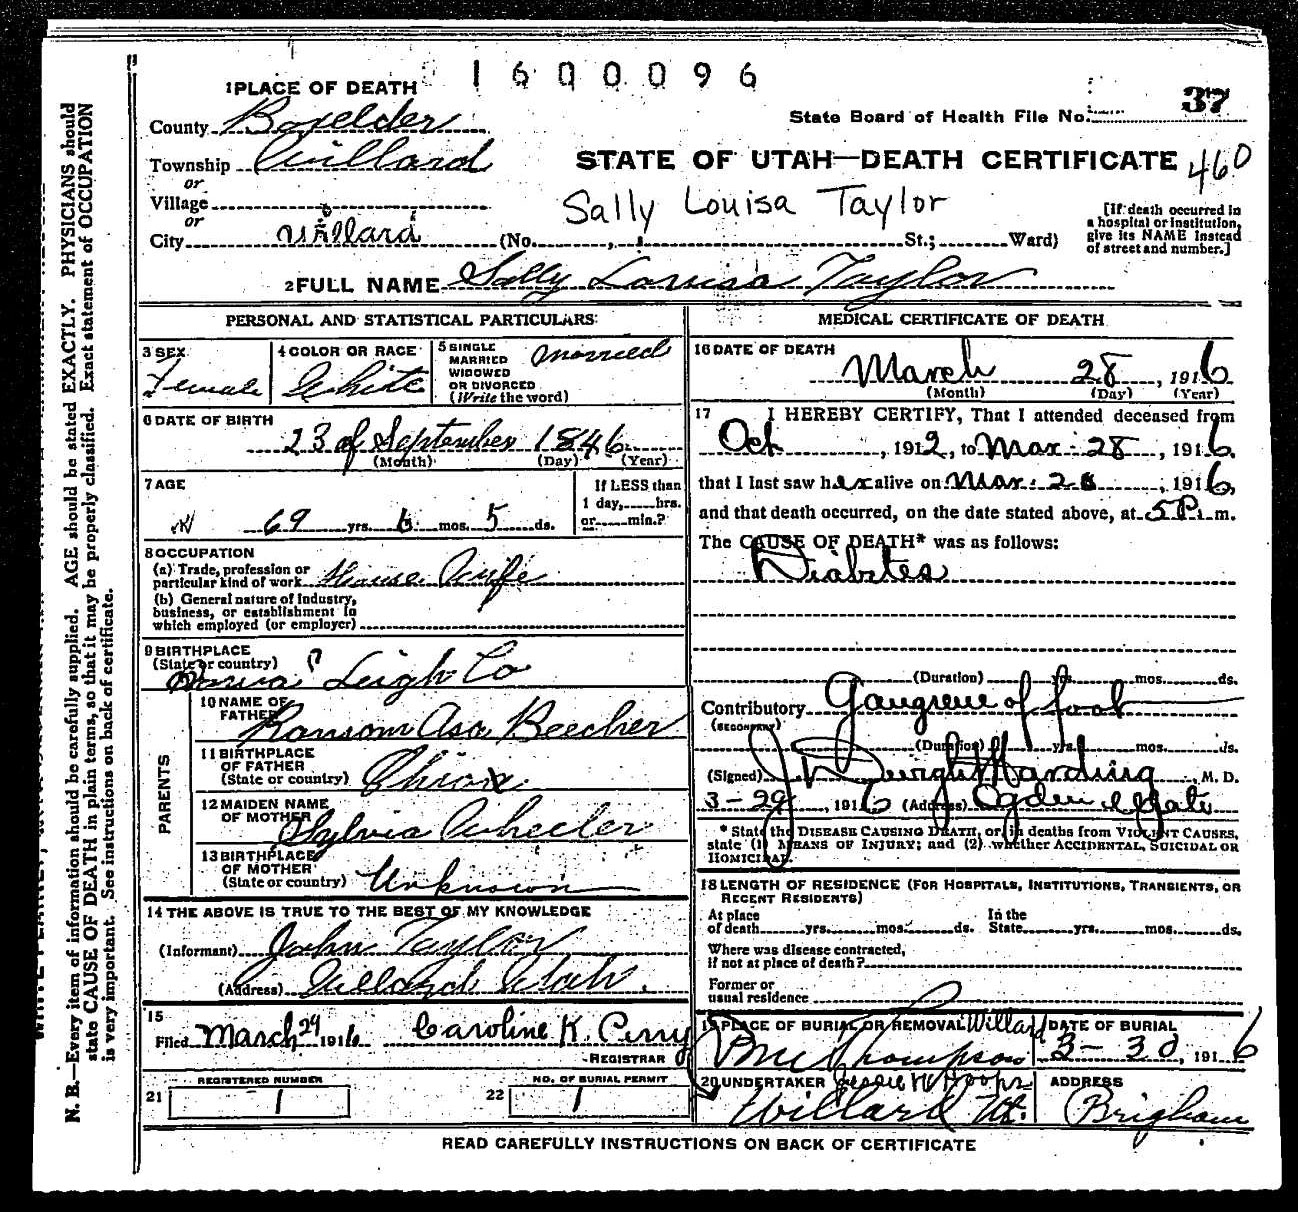 1600096
1 PLACE OF DEATH
37
State Board of Health File No.
County Boxelder
Township Willard
STATE OF UTAH—DEATH CERTIFICATE 460
or
Village
Sally Louisa Taylor
or
City Willard (No. , St.; Ward)
[If death occurred in
a hospital or institution,
give its NAME instead
of street and number.]
2 FULL NAME Sally Louisa Taylor
PERSONAL AND STATISTICAL PARTICULARS
3 SEX
Female
4 COLOR OR RACE
White
5 SINGLE
MARRIED
WIDOWED
OR DIVORCED
(Write the word)
Married
6 DATE OF BIRTH
23 of September 1846
(Month) (Day) (Year)
7 AGE
69 yrs. 6 mos. 5 ds.
If LESS than
1 day, hrs.
or min.?
8 OCCUPATION
(a) Trade, profession or
particular kind of work House Wife
(b) General nature of industry,
business, or establishment in
which employed (or employer)
9 BIRTHPLACE
(State or country)
Leigh Co
PARENTS
10 NAME OF
FATHER
Ransom Asa Beecher
11 BIRTHPLACE
OF FATHER
(State or country)
12 MAIDEN NAME
OF MOTHER
Sylvia Wheeler
13 BIRTHPLACE
OF MOTHER
(State or country) Unknown
14 THE ABOVE IS TRUE TO THE BEST OF MY KNOWLEDGE
(Informant) John Taylor
(Address) Willard Utah.
15
Filed March 29 1916 Caroline K. Perry
REGISTRAR
REGISTERED NUMBER
21 1
NO. OF BURIAL PERMIT
22 1
MEDICAL CERTIFICATE OF DEATH
16 DATE OF DEATH
March 28, 1916
(Month) (Day) (Year)
17 I HEREBY CERTIFY, That I attended deceased from
Oct, 1912, to Mar. 28, 1916,
that I last saw her alive on Mar. 28, 1916,
and that death occurred, on the date stated above, at 5 P. m.
The CAUSE OF DEATH* was as follows:
Diabetes
(Duration) yrs. mos. ds.
Contributory Gangrene of foot
(SECONDARY)
(Duration) yrs. mos. ds.
(Signed) Harding, M. D.
3-29, 1916 (Address) Ogden
* State the DISEASE CAUSING DEATH, or, in deaths from VIOLENT CAUSES,
state (1) MEANS OF INJURY; and (2) whether ACCIDENTAL, SUICIDAL OR
HOMICIDAL.
18 LENGTH OF RESIDENCE (FOR HOSPITALS, INSTITUTIONS, TRANSIENTS, OR
RECENT RESIDENTS)
At place
of death yrs. mos. ds.
In the
State yrs. mos. ds.
Where was disease contracted,
if not at place of death?
Former or
usual residence
19 PLACE OF BURIAL OR REMOVAL Willard
Thompson
DATE OF BURIAL
3-30, 1916
20 UNDERTAKER
Willard Ut.
ADDRESS
Brigham
READ CAREFULLY INSTRUCTIONS ON BACK OF CERTIFICATE
N. B.—Every item of information should be carefully supplied. AGE should be stated EXACTLY. PHYSICIANS should
state CAUSE OF DEATH in plain terms, so that it may be properly classified. Exact statement of OCCUPATION
is very important. See instructions on back of certificate.